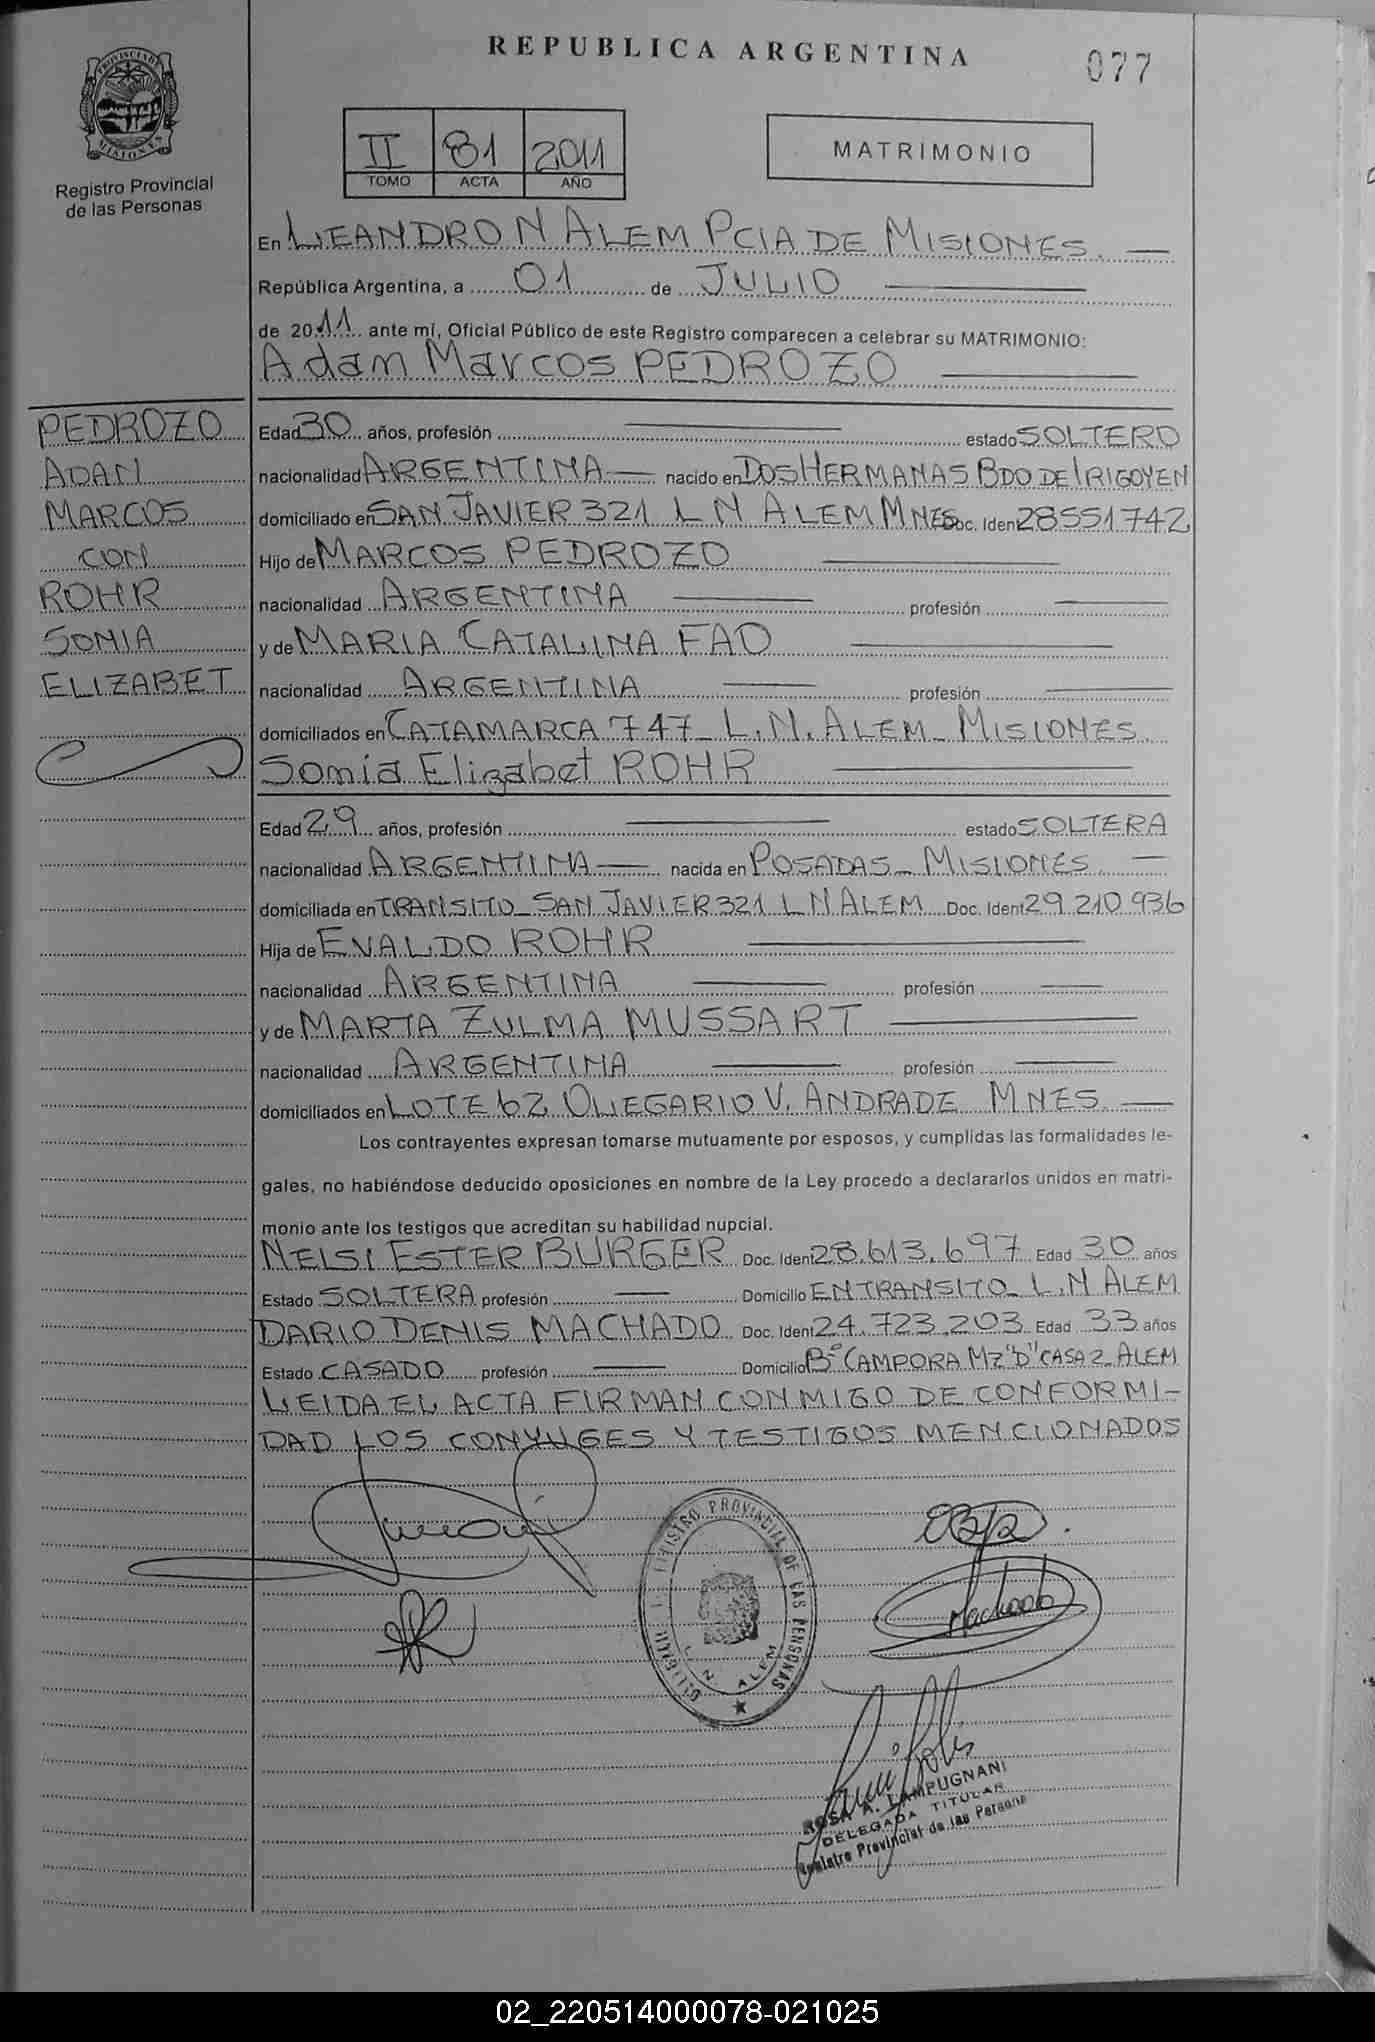 REPUBLICA ARGENTINA
077
PROVINCIA DE
MISIONES
Registro Provincial
de las Personas
II 81 2011
TOMO ACTA AÑO
MATRIMONIO
En LEANDRO N ALEM PCIA DE MISIONES.
República Argentina, a 01 de JULIO
de 2011 ante mí, Oficial Público de este Registro comparecen a celebrar su MATRIMONIO:
Adan Marcos PEDROZO
PEDROZO
ADAN
MARCOS
CON
ROHR
SONIA
ELIZABET
Edad 30 años, profesión estado SOLTERO
nacionalidad ARGENTINA nacido en DOS HERMANAS BDO DE IRIGOYEN
domiciliado en SAN JAVIER 321 L N ALEM MNES Doc. Iden 28551742
Hijo de MARCOS PEDROZO
nacionalidad ARGENTINA profesión
y de MARIA CATALINA FAO
nacionalidad ARGENTINA profesión
domiciliados en CATAMARCA 747- L.N. ALEM- MISIONES.
Sonia Elizabet ROHR
Edad 29 años, profesión estado SOLTERA
nacionalidad ARGENTINA nacida en POSADAS- MISIONES.
domiciliada en TRANSITO- SAN JAVIER 321 L N ALEM Doc. Ident 29 210 936
Hija de EVALDO ROHR
nacionalidad ARGENTINA profesión
y de MARTA ZULMA MUSSART
nacionalidad ARGENTINA profesión
domiciliados en LOTE 62 OLEGARIO V. ANDRADE MNES.
Los contrayentes expresan tomarse mutuamente por esposos, y cumplidas las formalidades le-
gales, no habiéndose deducido oposiciones en nombre de la Ley procedo a declararlos unidos en matri-
monio ante los testigos que acreditan su habilidad nupcial.
NELSI ESTER BURGER Doc. Ident 28.613.697 Edad 30 años
Estado SOLTERA profesión Domicilio EN TRANSITO- L.N ALEM
DARIO DENIS MACHADO Doc. Ident 24.723.203 Edad 33 años
Estado CASADO profesión Domicilio B° CAMPORA MZ "D" CASA 2 ALEM
LEIDA EL ACTA FIRMAN CONMIGO DE CONFORMI-
DAD LOS CONYUGES Y TESTIGOS MENCIONADOS
REGISTRO PROVINCIAL DE LAS PERSONAS
L. N. ALEM
Machado
ROSA A. LAMPUGNANI
DELEGADA TITULAR
Registro Provincial de las Persona
02_220514000078-021025